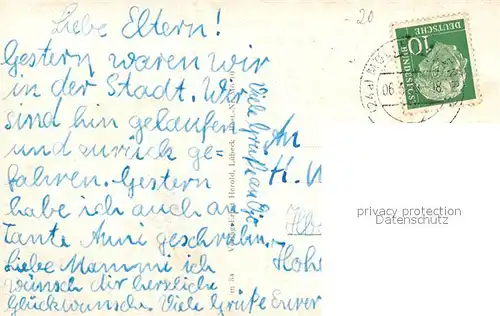 Liebe Eltern!
Gestern waren wir
in der Stadt. Wir
sind hin gelaufen
und zurück ge-
fahren. Gestern
habe ich auch an
Tante Anni geschrieben.
Liebe Mammi ich
wünsch dir herzliche
Glückwünsche. Viele Grüße Eurer
Viele Grüße an
Herold, Lübeck
m 34
An
H.
-20
10
DEUTSCHE
BUNDESPOST
(24a)
06
18
privacy protection
Datenschutz